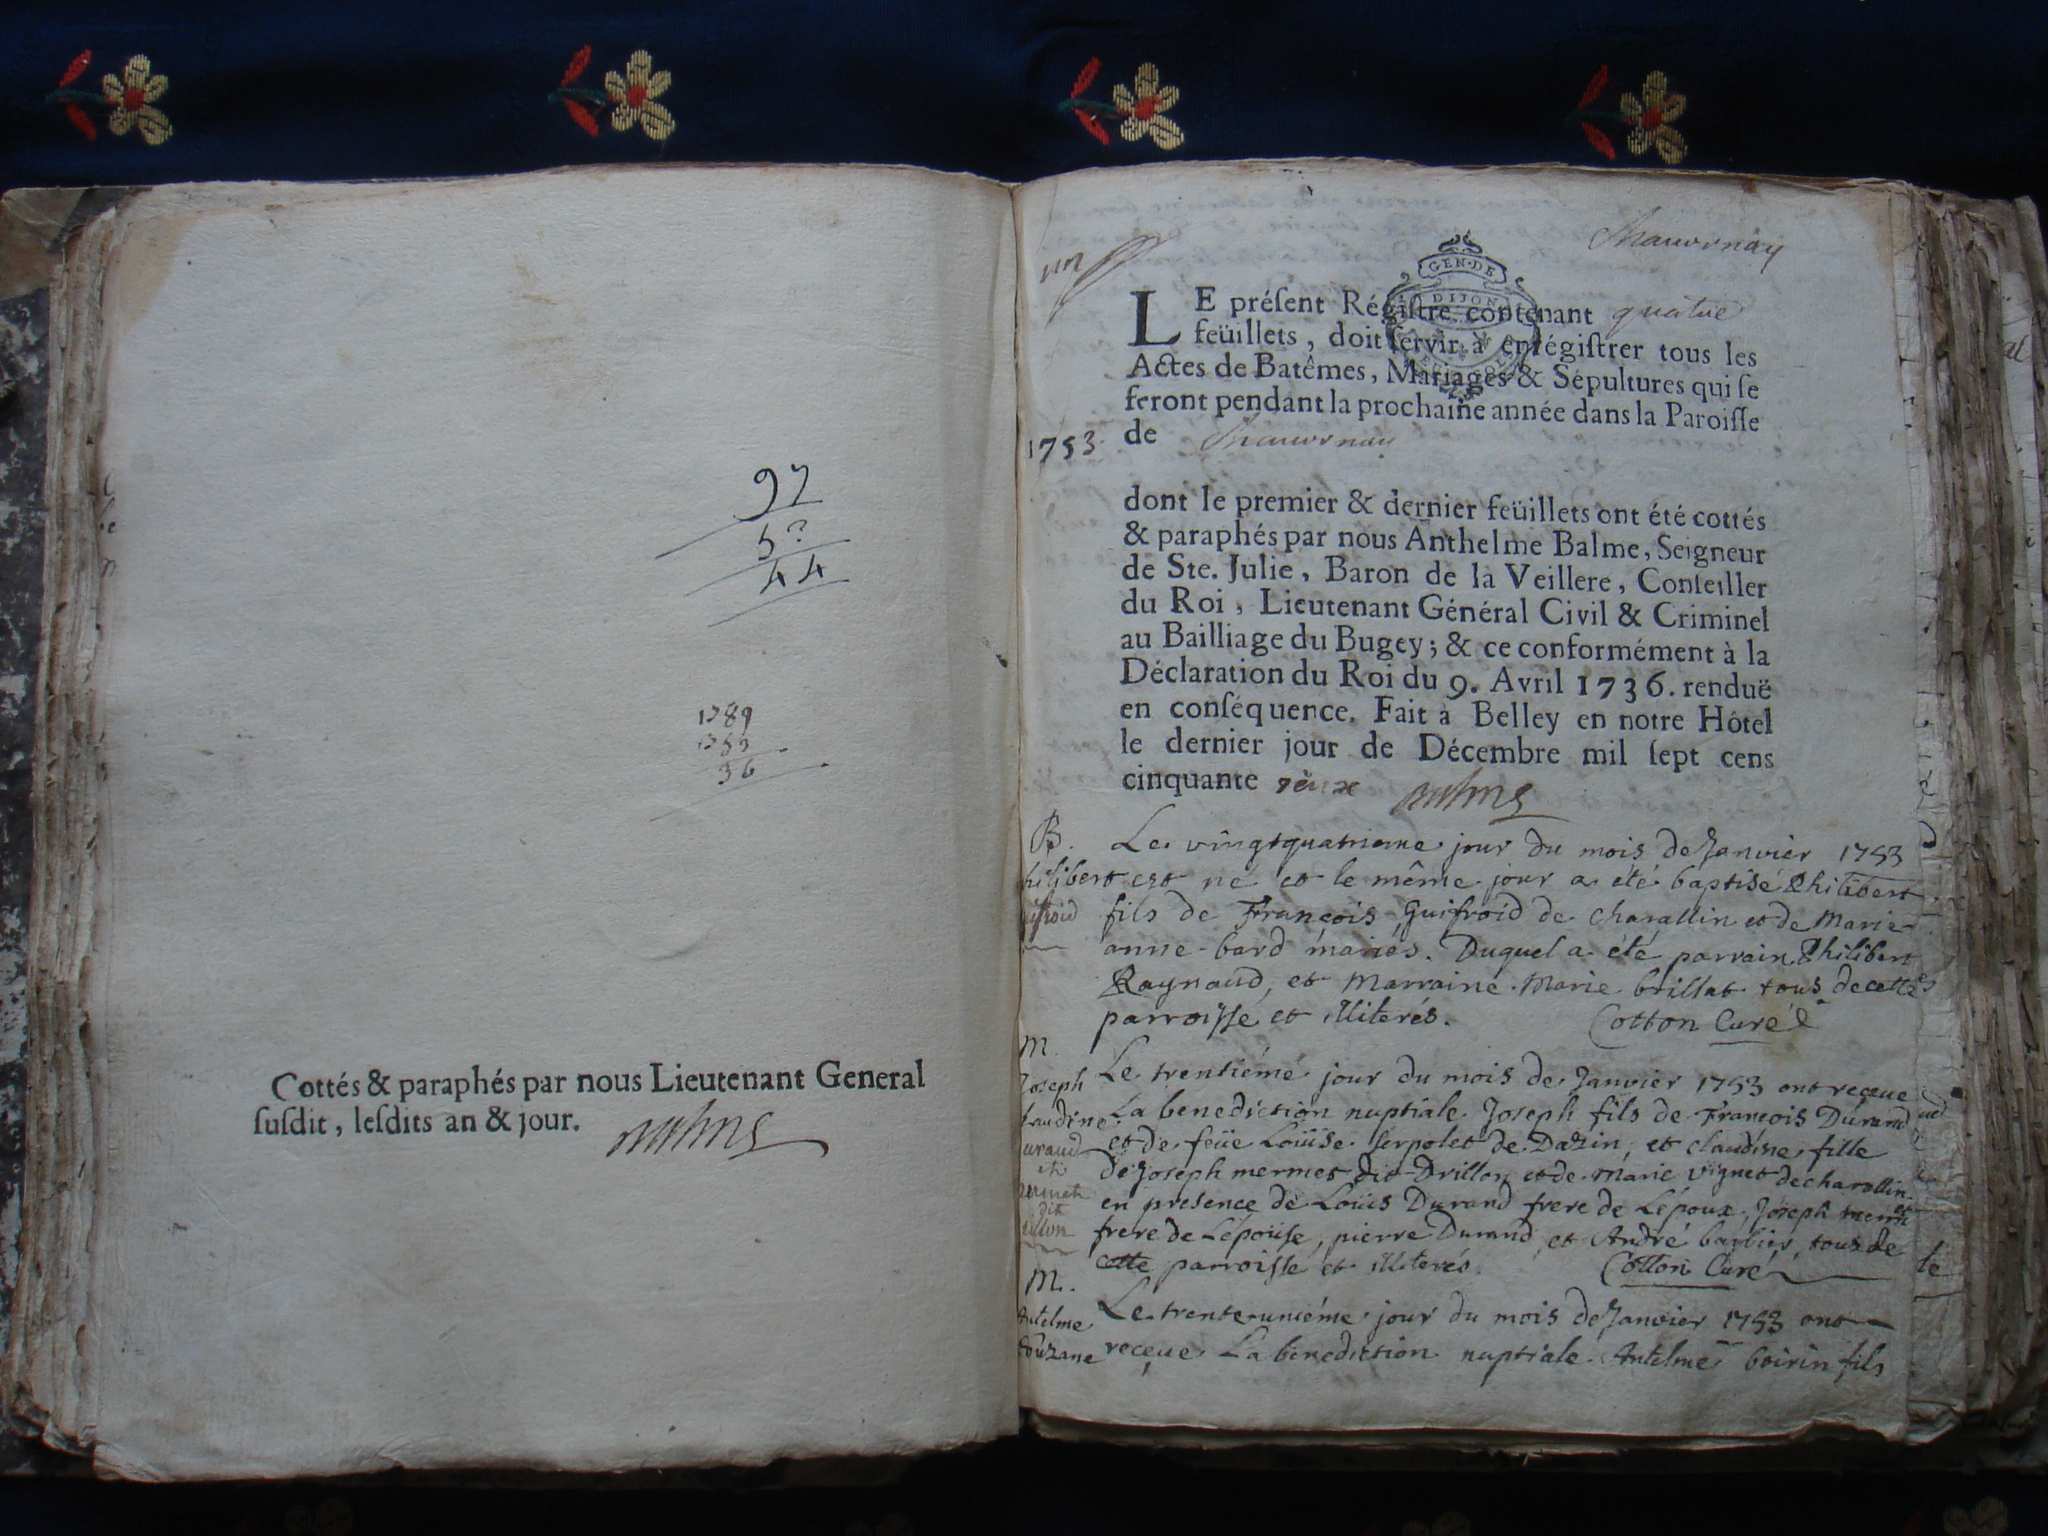 97
5?
44
1789
1753
36
Cottés & paraphés par nous Lieutenant General
susdit, lesdits an & jour.
GEN·DE
DIJON
LE présent Régistre contenant quatre
feüillets, doit servir à enrégistrer tous les
Actes de Batêmes, Mariages & Sépultures qui se
feront pendant la prochaine année dans la Paroisse
1753
de
dont le premier & dernier feüillets ont été cottés
& paraphés par nous Anthelme Balme, Seigneur
de Ste. Julie, Baron de la Veillere, Conseiller
du Roi, Lieutenant Général Civil & Criminel
au Bailliage du Bugey; & ce conformément à la
Déclaration du Roi du 9. Avril 1736. renduë
en conséquence. Fait à Belley en notre Hôtel
le dernier jour de Décembre mil sept cens
cinquante deux
B.
hilibert
Le vingtquatrieme jour du mois de Janvier 1753
est né et le même jour a été baptisé Philibert
fils de François Guifroid de charallin et de Marie
anne bard mariés. Duquel a été parrain Philibert
Raynaud, et Marraine Marie brillat tous de cette
parroisse et illiterés. Cotton Curé
M.
Joseph
Le trentiéme jour du mois de Janvier 1753 ont reçeue
La benediction nuptiale Joseph fils de François Durand
et de feüe Loüise serpolet de Dazin, et claudine fille
de Joseph mermet dit Drillon et de Marie vignet de charallin
en presence de Loüis Durand frere de L'époux, Joseph
frere de L'épouse, pierre Durand et André barbier, tous de
cette parroisse et illiterés. Cotton Curé
M.
Antelme
Le trente-uniéme jour du mois de Janvier 1753 ont
reçeue La benediction nuptiale Antelme boirin fils